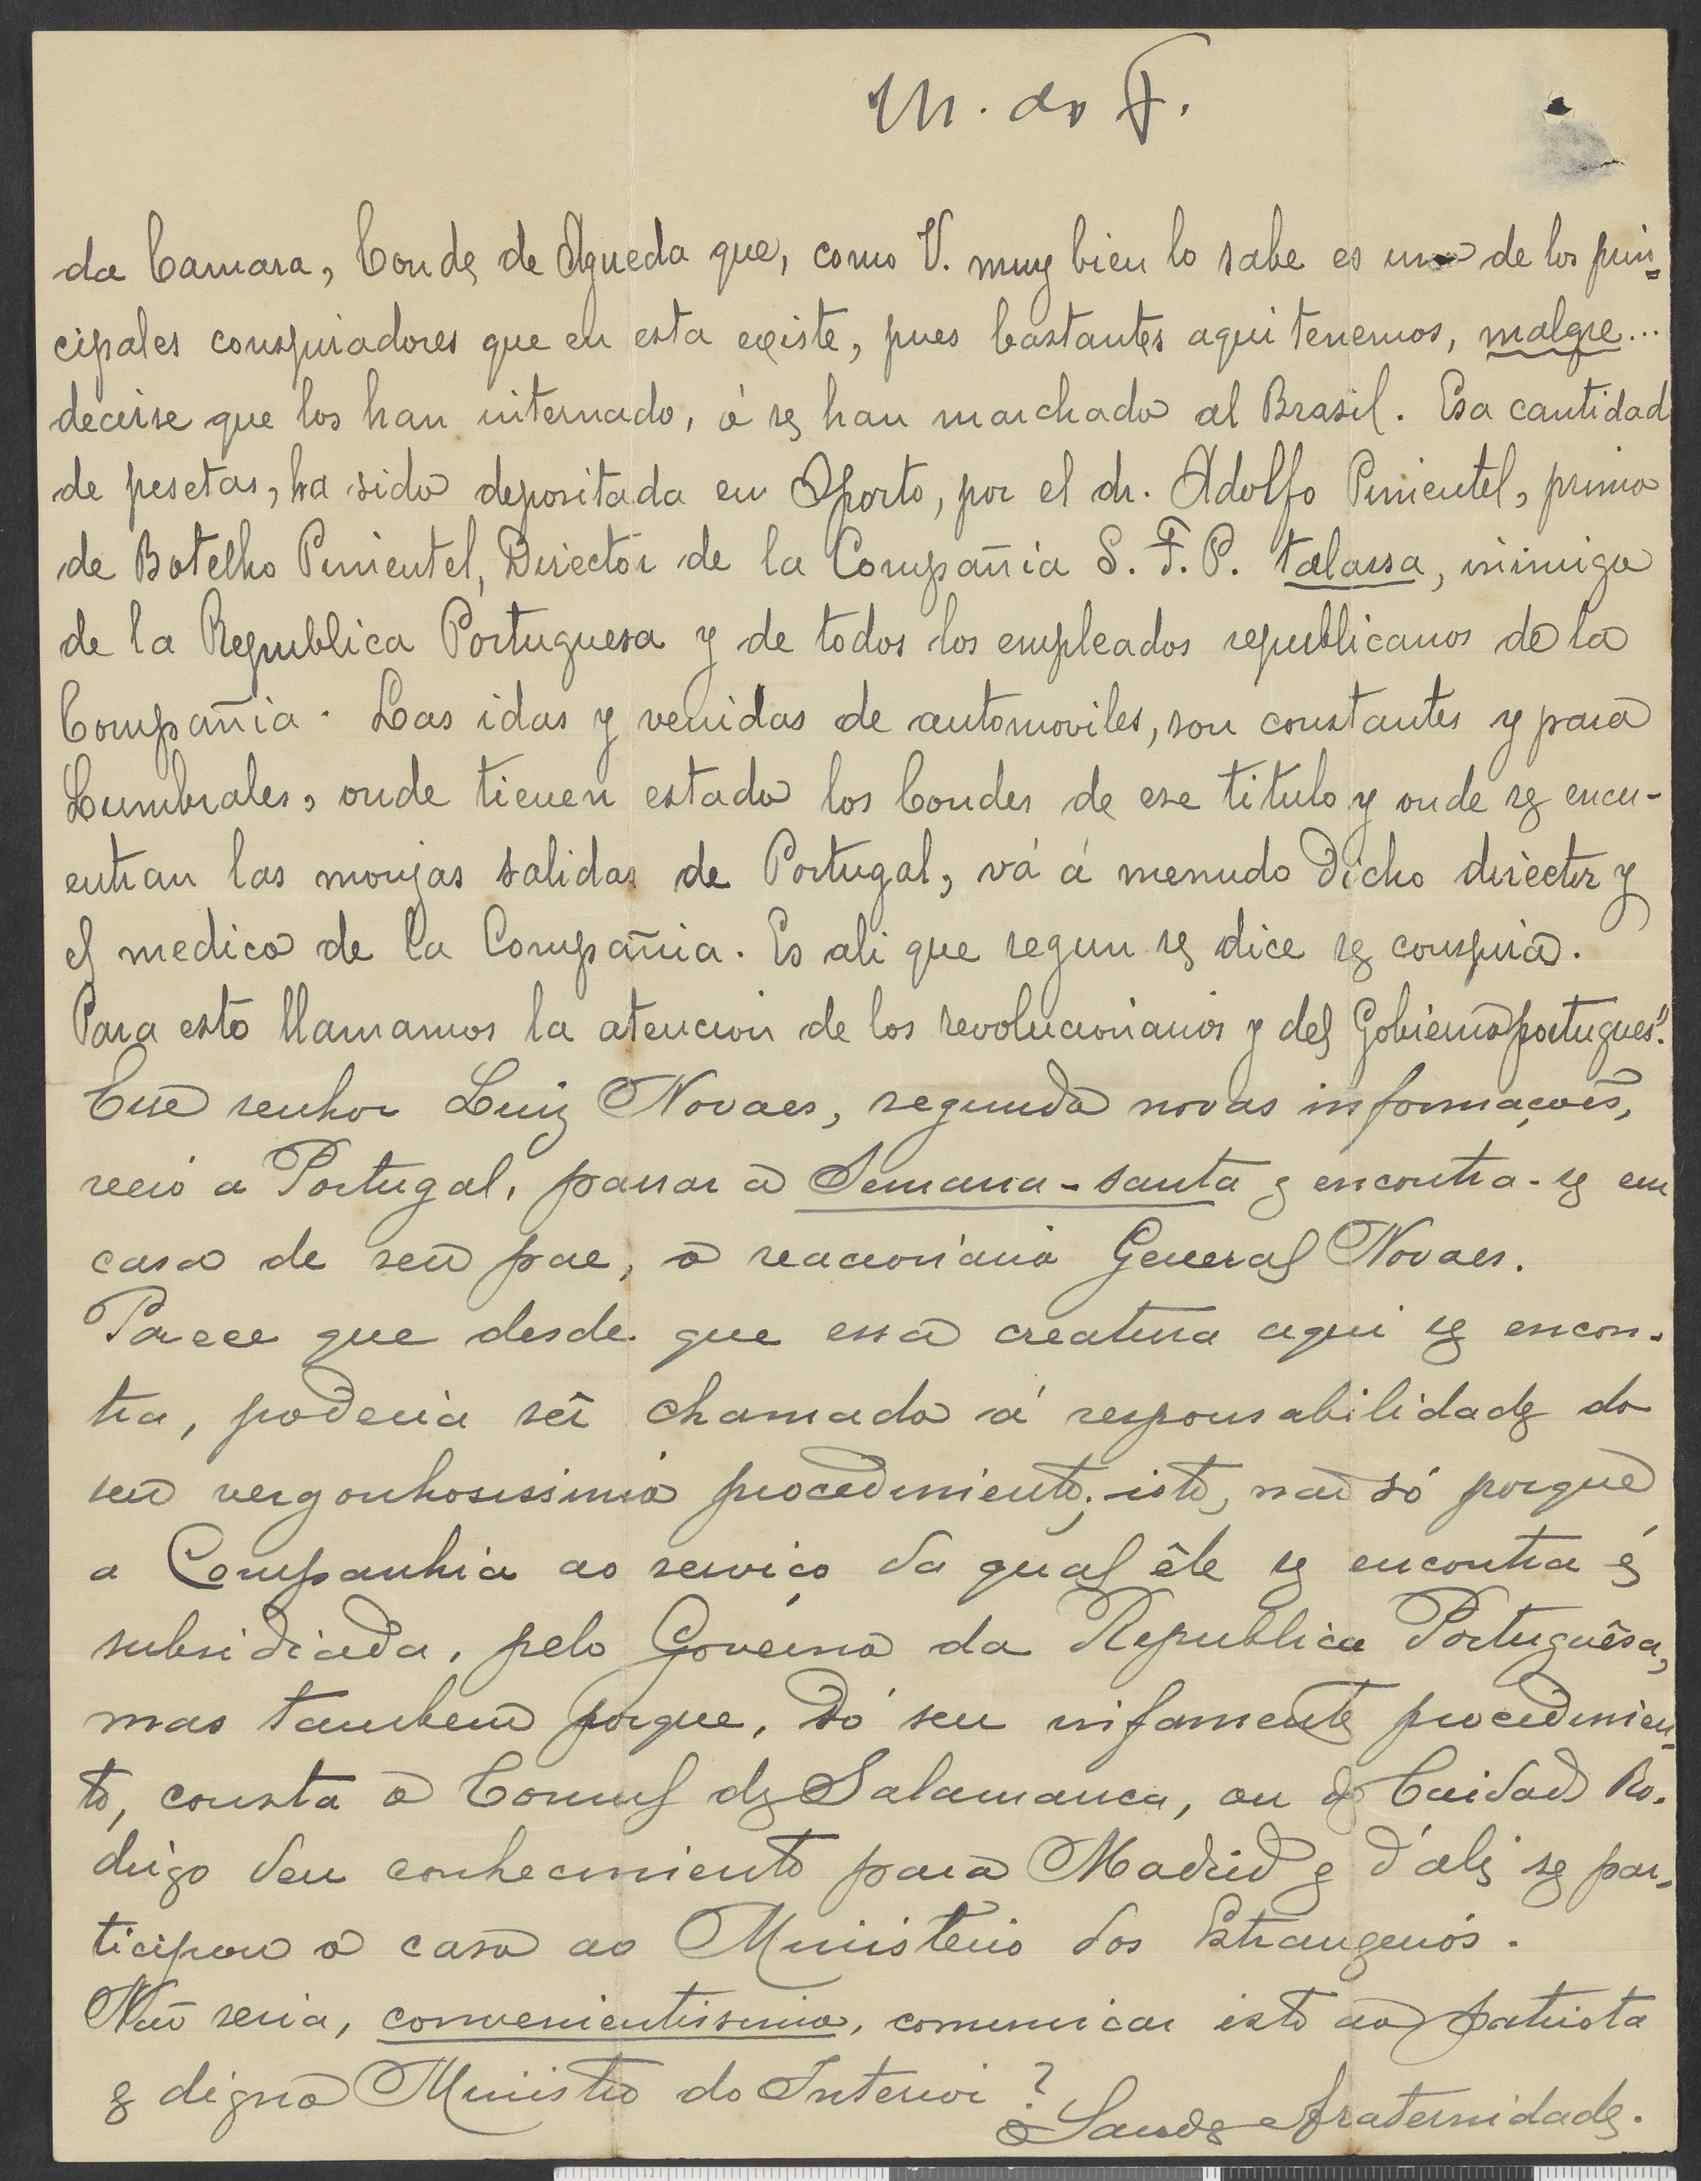 M. do F.
da Camara, Conde de Agueda que, como V. muy bien lo sabe es uno de los prin-
cipales conspiradores que en esta existe, pues bastantes aqui tenemos, malgre...
decirse que los han internado, ó se han marchado al Brasil. Esa cantidad
de pesetas, ha sido depositada en Oporto, por el dr. Adolfo Pimentel, primo
de Botelho Pimentel, Director de la Compañia S. F. P. talassa, inimigo
de la Republica Portuguesa y de todos los empleados republicanos de la
Compañia. Las idas y venidas de automoviles, son constantes y para
Lumbrales, onde tienen estado los Condes de ese titulo y onde se encu-
entran las monjas salidas de Portugal, vá á menudo dicho director y
el medico de la Compañia. Es ali que segun se dice se conspira.
Para esto llamamos la atencion de los revolucionarios y del Gobierno portugues".
Esse senhor Luiz Novaes, segundo novas informações,
veio a Portugal, passar a Semana-santa e encontra-se em
casa de seu pae, o reacionario General Novaes.
Parece que desde que essa creatura aqui se encon-
tra, poderia sêr chamado á responsabilidade do
seu vergonhosissimo procedimento; isto, não só porque
a Companhia ao serviço da qual êle se encontra é
subsidiada, pelo Govêrno da Republica Portuguêsa,
mas tambem porque, dó seu infamente procedimen-
to, consta o Consul de Salamanca, ou de Cuidad Ro-
drigo deu conhecimento para Madrid e d'ali se par-
ticipou o caso ao Ministerio dos Estrangeiros.
Não seria, convenientissimo, comunicar isto ao patriota
e digno Ministro do Interior?
Saude e fraternidade.